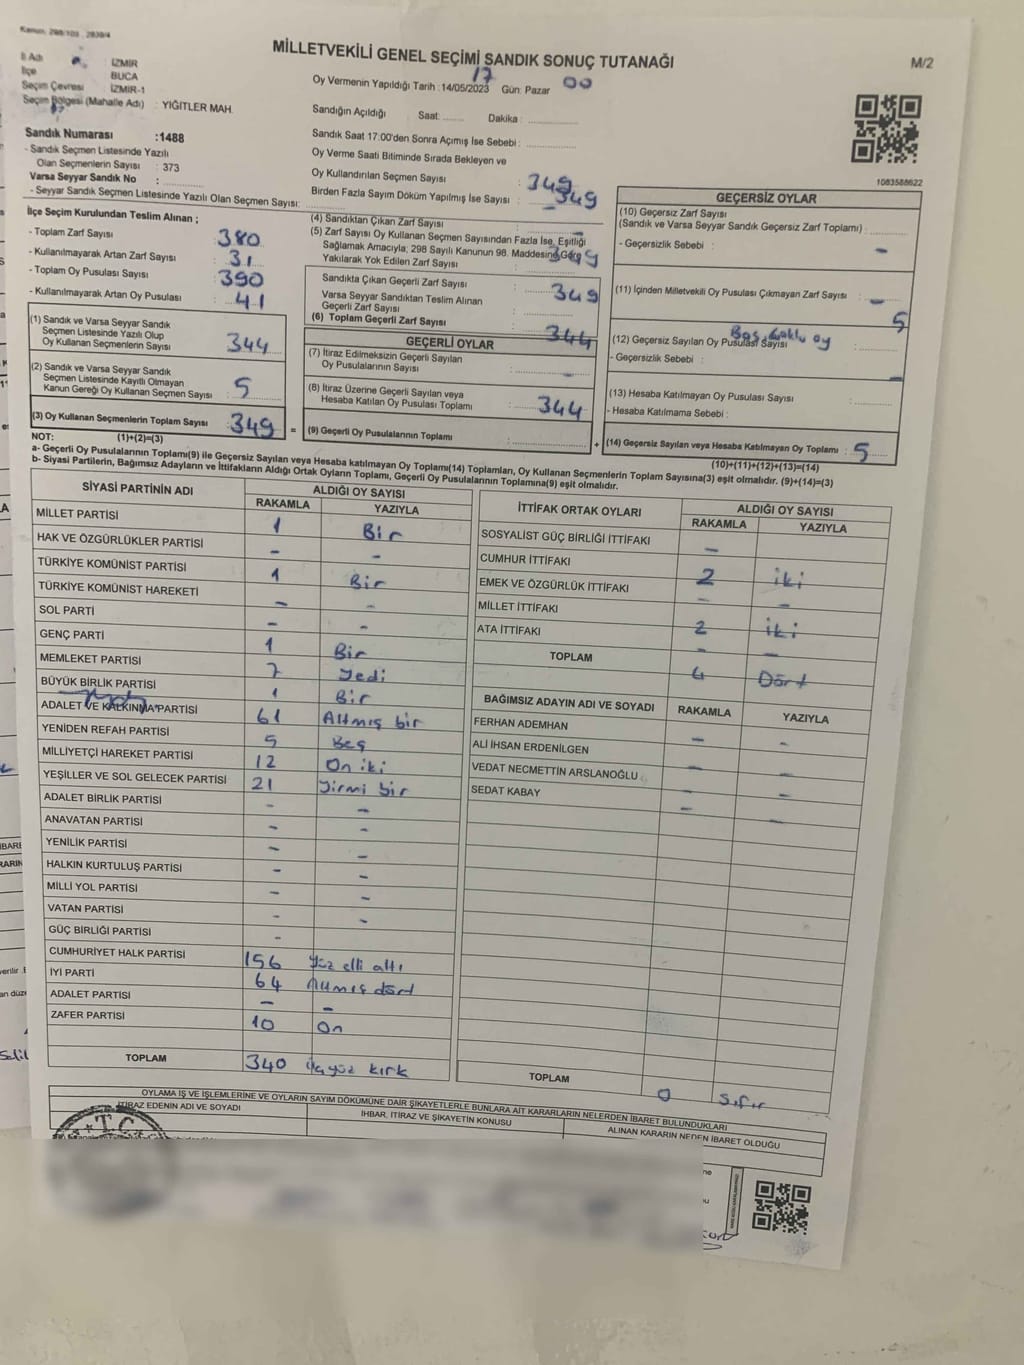 Kanun: 298/103 , 2839/4
MİLLETVEKİLİ GENEL SEÇİMİ SANDIK SONUÇ TUTANAĞI
M/2
İl Adı : İZMİR
İlçe BUCA
Seçim Çevresi İZMİR-1
Seçim Bölgesi (Mahalle Adı) : YİĞİTLER MAH.
Sandık Numarası :1488
- Sandık Seçmen Listesinde Yazılı
Olan Seçmenlerin Sayısı : 373
Varsa Seyyar Sandık No :
- Seyyar Sandık Seçmen Listesinde Yazılı Olan Seçmen Sayısı:
Oy Vermenin Yapıldığı Tarih :14/05/2023 Gün: Pazar
17 00
Sandığın Açıldığı Saat: Dakika :
Sandık Saat 17:00'den Sonra Açımış İse Sebebi :
Oy Verme Saati Bitiminde Sırada Bekleyen ve
Oy Kullandırılan Seçmen Sayısı : 349
Birden Fazla Sayım Döküm Yapılmış İse Sayısı : 349
1083588622
İlçe Seçim Kurulundan Teslim Alınan ;
- Toplam Zarf Sayısı : 380
- Kullanılmayarak Artan Zarf Sayısı : 31
- Toplam Oy Pusulası Sayısı : 390
- Kullanılmayarak Artan Oy Pusulası : 41
(1) Sandık ve Varsa Seyyar Sandık
Seçmen Listesinde Yazılı Olup
Oy Kullanan Seçmenlerin Sayısı : 344
(2) Sandık ve Varsa Seyyar Sandık
Seçmen Listesinde Kayıtlı Olmayan
Kanun Gereği Oy Kullanan Seçmen Sayısı : 5
(3) Oy Kullanan Seçmenlerin Toplam Sayısı : 349
(4) Sandıktan Çıkan Zarf Sayısı :
(5) Zarf Sayısı Oy Kullanan Seçmen Sayısından Fazla İse, Eşitliği
Sağlamak Amacıyla; 298 Sayılı Kanunun 98. Maddesine Göre
Yakılarak Yok Edilen Zarf Sayısı : 349
Sandıkta Çıkan Geçerli Zarf Sayısı : 349
Varsa Seyyar Sandıktan Teslim Alınan
Geçerli Zarf Sayısı :
(6) Toplam Geçerli Zarf Sayısı : 344
GEÇERLİ OYLAR
(7) İtiraz Edilmeksizin Geçerli Sayılan
Oy Pusulalarının Sayısı : -
(8) İtiraz Üzerine Geçerli Sayılan veya
Hesaba Katılan Oy Pusulası Toplamı : 344
= (9) Geçerli Oy Pusulalarının Toplamı :
GEÇERSİZ OYLAR
(10) Geçersiz Zarf Sayısı
(Sandık ve Varsa Seyyar Sandık Geçersiz Zarf Toplamı) :
- Geçersizlik Sebebi : -
(11) İçinden Milletvekili Oy Pusulası Çıkmayan Zarf Sayısı : -
5
(12) Geçersiz Sayılan Oy Pusulası Sayısı :
- Geçersizlik Sebebi : -
(13) Hesaba Katılmayan Oy Pusulası Sayısı :
- Hesaba Katılmama Sebebi :
+ (14) Geçersiz Sayılan veya Hesaba Katılmayan Oy Toplamı : 5
NOT: (1)+(2)=(3)
(10)+(11)+(12)+(13)=(14)
a- Geçerli Oy Pusulalarının Toplamı(9) ile Geçersiz Sayılan veya Hesaba katılmayan Oy Toplamı(14) Toplamları, Oy Kullanan Seçmenlerin Toplam Sayısına(3) eşit olmalıdır. (9)+(14)=(3)
b- Siyasi Partilerin, Bağımsız Adayların ve İttifakların Aldığı Ortak Oyların Toplamı, Geçerli Oy Pusulalarının Toplamına(9) eşit olmalıdır.
SİYASİ PARTİNİN ADI ALDIĞI OY SAYISI
RAKAMLA YAZIYLA
MİLLET PARTİSİ 1 Bir
HAK VE ÖZGÜRLÜKLER PARTİSİ - -
TÜRKİYE KOMÜNİST PARTİSİ 1 Bir
TÜRKİYE KOMÜNİST HAREKETİ - -
SOL PARTİ - -
GENÇ PARTİ 1 Bir
MEMLEKET PARTİSİ 7 Yedi
BÜYÜK BİRLİK PARTİSİ 1 Bir
ADALET VE KALKINMA PARTİSİ 61 Altmış bir
YENİDEN REFAH PARTİSİ 5 Beş
MİLLİYETÇİ HAREKET PARTİSİ 12 On iki
YEŞİLLER VE SOL GELECEK PARTİSİ 21 Yirmi bir
ADALET BİRLİK PARTİSİ - -
ANAVATAN PARTİSİ - -
YENİLİK PARTİSİ - -
HALKIN KURTULUŞ PARTİSİ - -
MİLLİ YOL PARTİSİ - -
VATAN PARTİSİ - -
GÜÇ BİRLİĞİ PARTİSİ -
CUMHURİYET HALK PARTİSİ 156 Yüz elli altı
İYİ PARTİ 64 Altmış dört
ADALET PARTİSİ - -
ZAFER PARTİSİ 10 On
TOPLAM 340 üçyüz kırk
İTTİFAK ORTAK OYLARI ALDIĞI OY SAYISI
RAKAMLA YAZIYLA
SOSYALİST GÜÇ BİRLİĞİ İTTİFAKI -
CUMHUR İTTİFAKI 2 iki
EMEK VE ÖZGÜRLÜK İTTİFAKI - -
MİLLET İTTİFAKI 2 iki
ATA İTTİFAKI - -
TOPLAM 4 Dört
BAĞIMSIZ ADAYIN ADI VE SOYADI RAKAMLA YAZIYLA
FERHAN ADEMHAN - -
ALİ İHSAN ERDENİLGEN - -
VEDAT NECMETTİN ARSLANOĞLU - -
SEDAT KABAY - -
TOPLAM 0 Sıfır
OYLAMA İŞ VE İŞLEMLERİNE VE OYLARIN SAYIM DÖKÜMÜNE DAİR ŞİKAYETLERLE BUNLARA AİT KARARLARIN NELERDEN İBARET BULUNDUKLARI
İTİRAZ EDENİN ADI VE SOYADI İHBAR, İTİRAZ VE ŞİKAYETİN KONUSU ALINAN KARARIN NEDEN İBARET OLDUĞU
T.C.